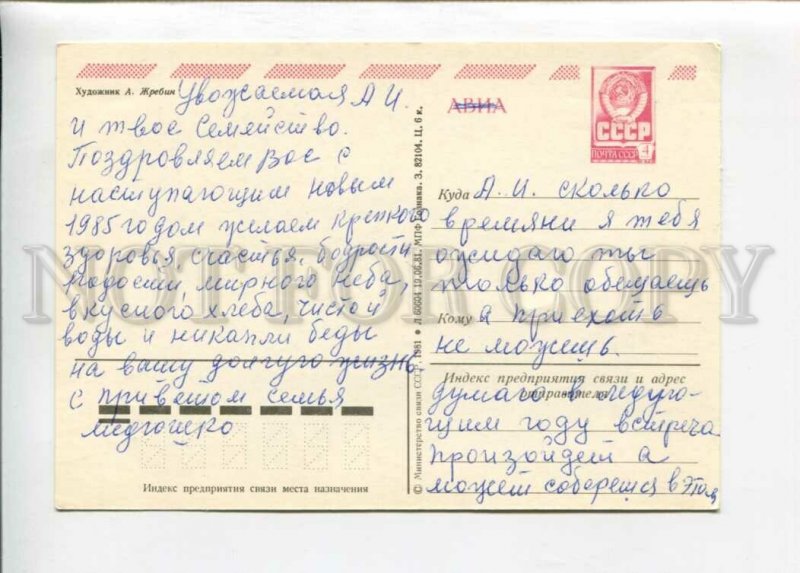 Художник А. Жребин
Уважаемая А И.
и твое семейство.
Поздровляем Вас с
наступагощим новым
1985 годом желаем крепкого
здоровья счастья, бодрости
младости мирного неба,
вкусного хлеба, чистой
воды и никапли беды
на вашу долгуго жизнь.
с приветом семья
Индекс предприятия связи места назначения
© Министерство связи СССР. 1981 • Л 60604 19.06.81. МПФ Гознака. З. 82104. Ц. 6 к.
АВИА
СССР
ПОЧТА СССР 4
Куда А. И. сколько
времяни я тебя
ожидаго ты
только обещаешь
Кому а приехоть
не можешь.
Индекс предприятия связи и адрес
отправителя
думаго в следуго-
щим году встреча
произойдет а
может соберешся в этом
NOT FOR COPY